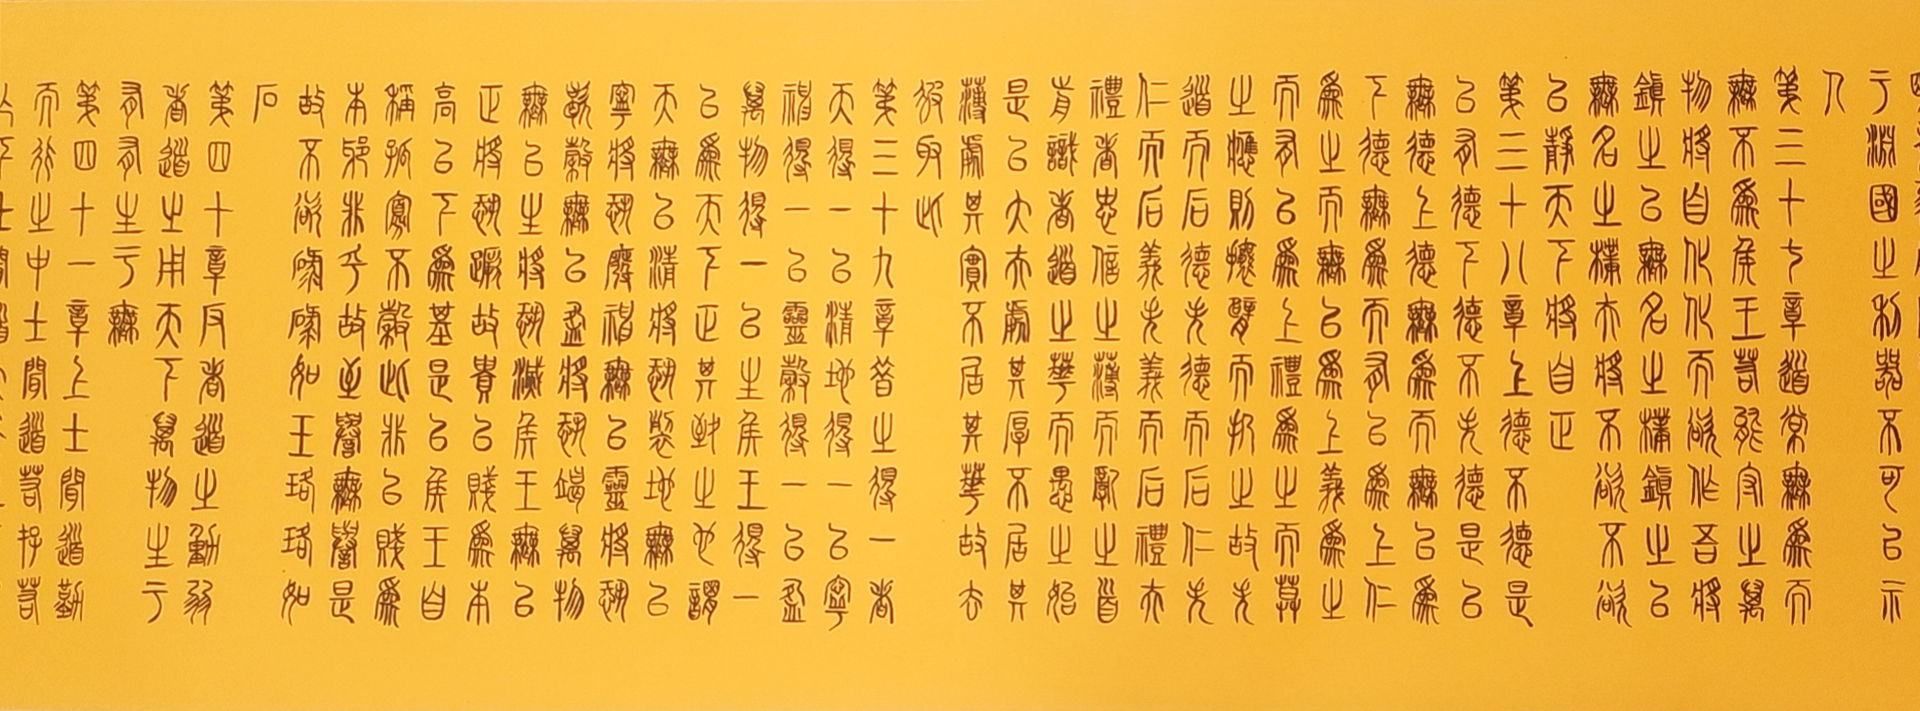 于淵國之利器不可以示
人
第三十七章道常無為而
無不為侯王若能守之萬
物將自化化而欲作吾將
鎮之以無名之樸鎮之以
無名之樸亦將不欲不欲
以靜天下將自正
第三十八章上德不德是
以有德下德不失德是以
無德上德無為而無以為
下德無為而有以為上仁
為之而無以為上義為之
而有以為上禮為之而莫
之應則攘臂而扔之故失
道而后德失德而后仁失
仁而后義失義而后禮夫
禮者忠信之薄而亂之首
前識者道之華而愚之始
是以大夫處其厚不居其
薄處其實不居其華故去
彼取此
第三十九章昔之得一者
天得一以清地得一以寧
神得一以靈穀得一以盈
萬物得一以生侯王得一
以為天下正其致之也謂
天無以清將恐裂地無以
寧將恐廢神無以靈將恐
歇穀無以盈將恐竭萬物
無以生將恐滅侯王無以
正將恐蹶故貴以賤為本
高以下為基是以侯王自
稱孤寡不穀此非以賤為
本邪非乎故至譽無譽是
故不欲琭琭如玉珞珞如
石
第四十章反者道之動弱
者道之用天下萬物生于
有有生于無
第四十一章上士聞道勤
而行之中士聞道若存若